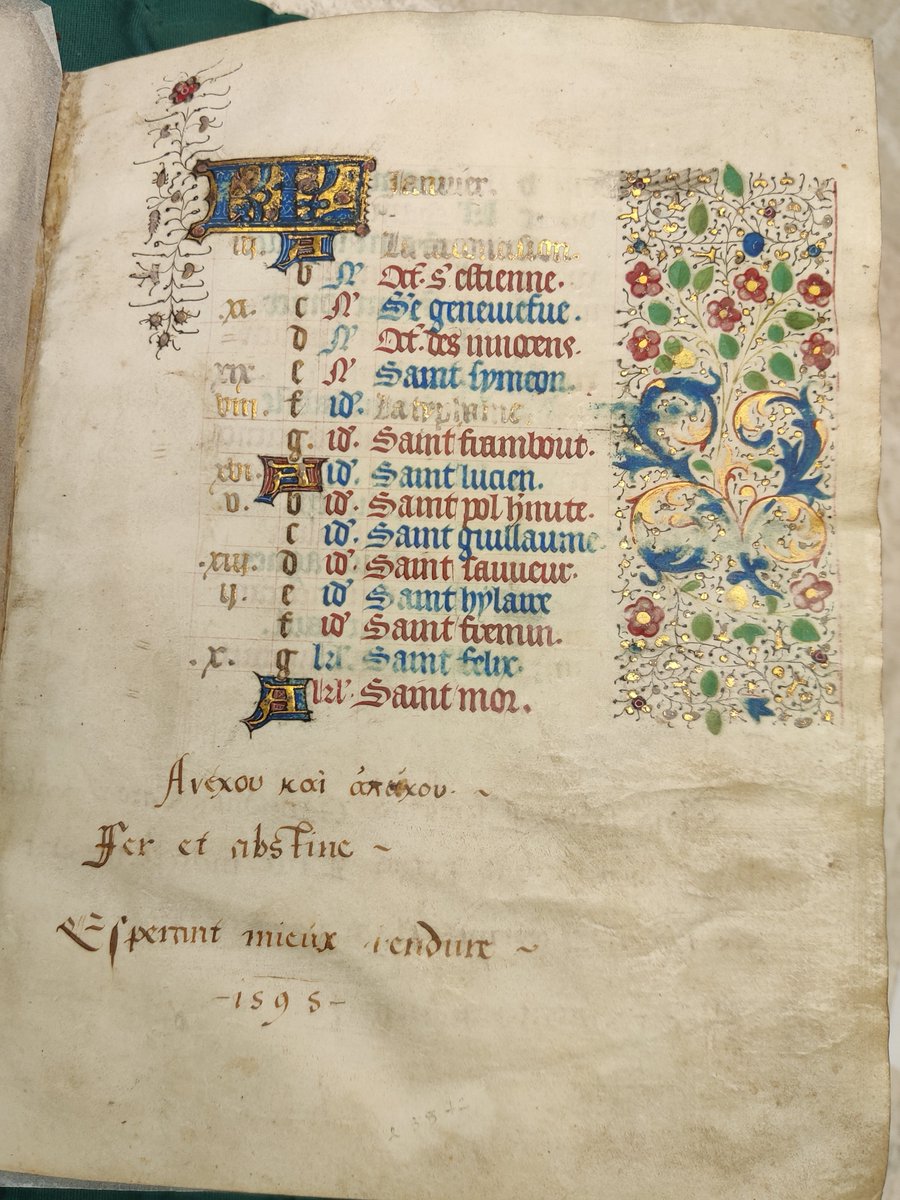 KL Janvier.
iij. A La circoncision.
b N Oct. s' estienne.
.xi. c N S'e geneuiefue.
d N Oct. des innocens.
xix e N Saint symeon.
viij f id. La typhaine.
g. id Saint frambout.
xvi. A id. Saint lucien.
v. b id. Saint pol h'mite.
c id. Saint guillaume
.xiij. d id Saint sauueur.
ij. e id Saint hylaire
f id. Saint fremin.
.x. g kl. Saint felix.
A kl. Saint mor.
Ἀνέχου καὶ ἀπέχου. ~
Fer et abstine ~
Esperant mieux iendure ~
-1595-